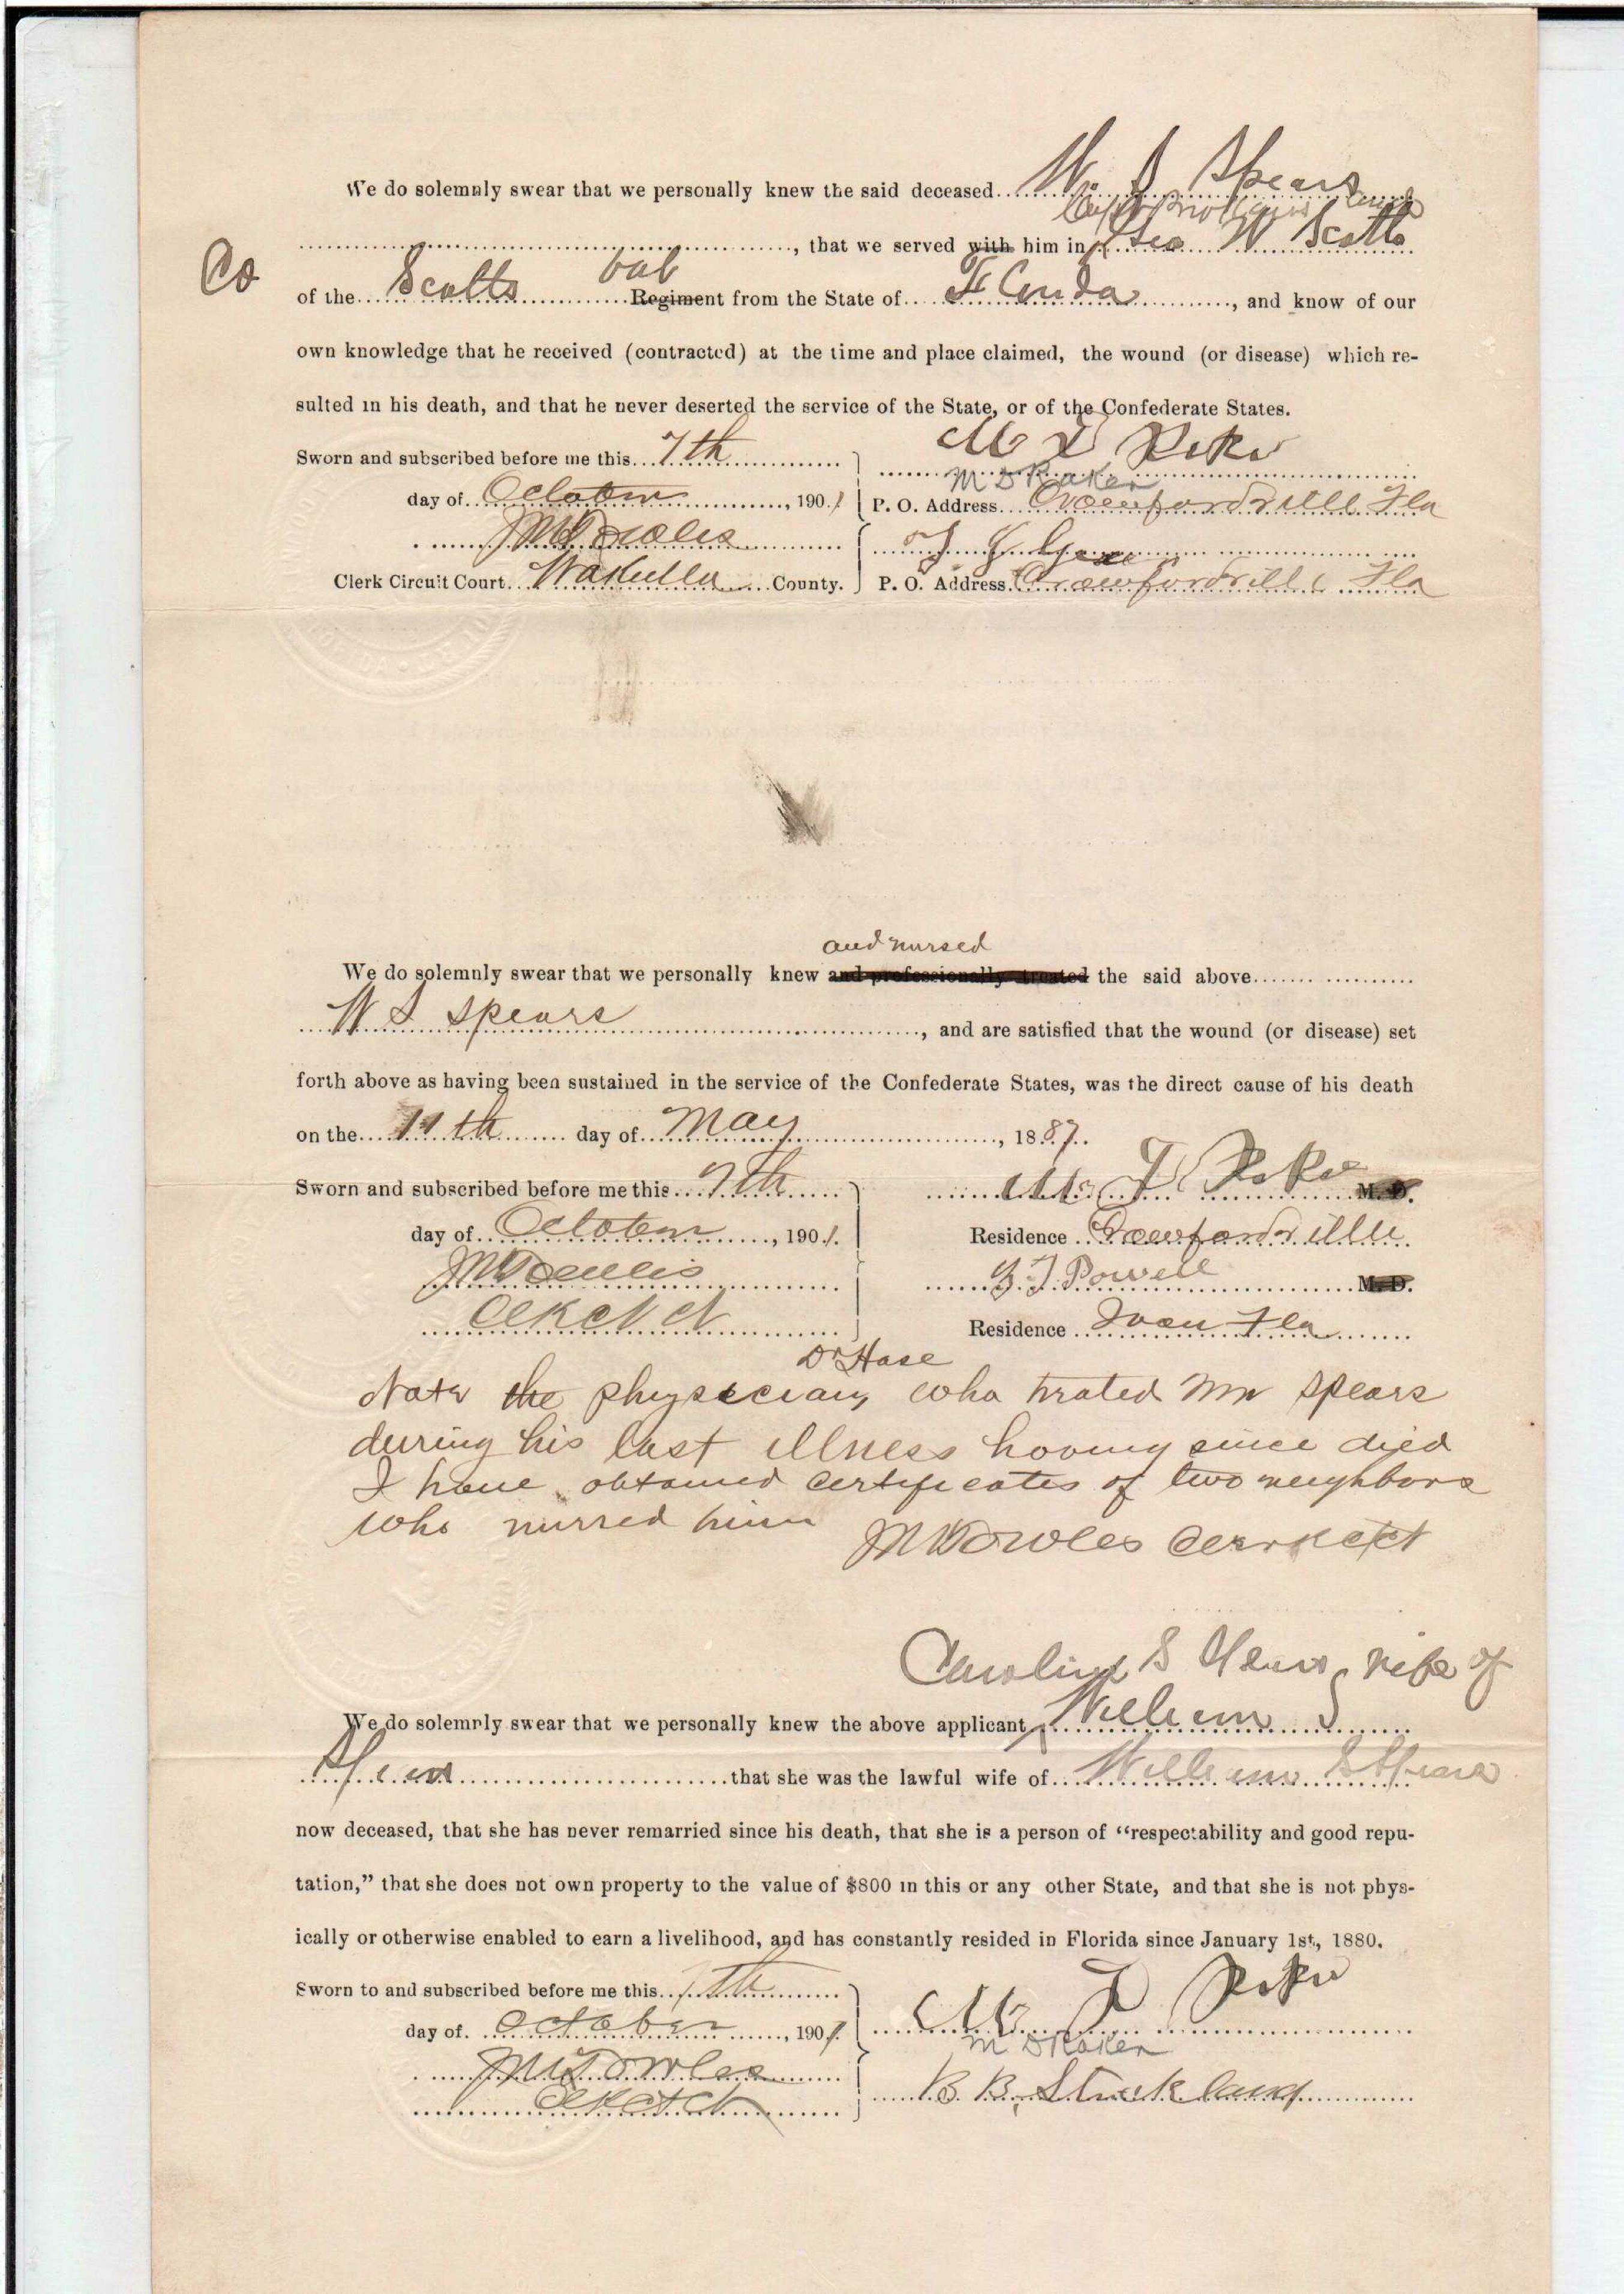 We do solemnly swear that we personally knew the said deceased W. S. Spears
, that we served with him in Geo W Scotts
Co
of the Scotts bat Regiment from the State of Florida, and know of our
own knowledge that he received (contracted) at the time and place claimed, the wound (or disease) which re-
sulted in his death, and that he never deserted the service of the State, or of the Confederate States.
Sworn and subscribed before me this 7th
M D Raker
day of October, 1901
P. O. Address Crawfordville Fla
Clerk Circuit Court Wakulla County.
P. O. Address Crawfordville Fla
and nursed
We do solemnly swear that we personally knew and professionally treated the said above
W S Spears, and are satisfied that the wound (or disease) set
forth above as having been sustained in the service of the Confederate States, was the direct cause of his death
on the 11th day of May, 1887.
Sworn and subscribed before me this 7th
M. D.
day of October, 1901.
Residence Crawfordville
Powell M. D.
Clk Ct Ct
Residence Ivan Fla
Dr Hase
Note the physician who trated Mr Spears
during his last illness having since died
I have obtained certificates of two neighbors
who nursed him
Caroline S Spears wife of
We do solemnly swear that we personally knew the above applicant William S
Spears that she was the lawful wife of William S Spears
now deceased, that she has never remarried since his death, that she is a person of “respectability and good repu-
tation,” that she does not own property to the value of $800 in this or any other State, and that she is not phys-
ically or otherwise enabled to earn a livelihood, and has constantly resided in Florida since January 1st, 1880.
Sworn to and subscribed before me this 7th
day of October, 1901.
M D Raker
J M Towles
B. B. Strickland